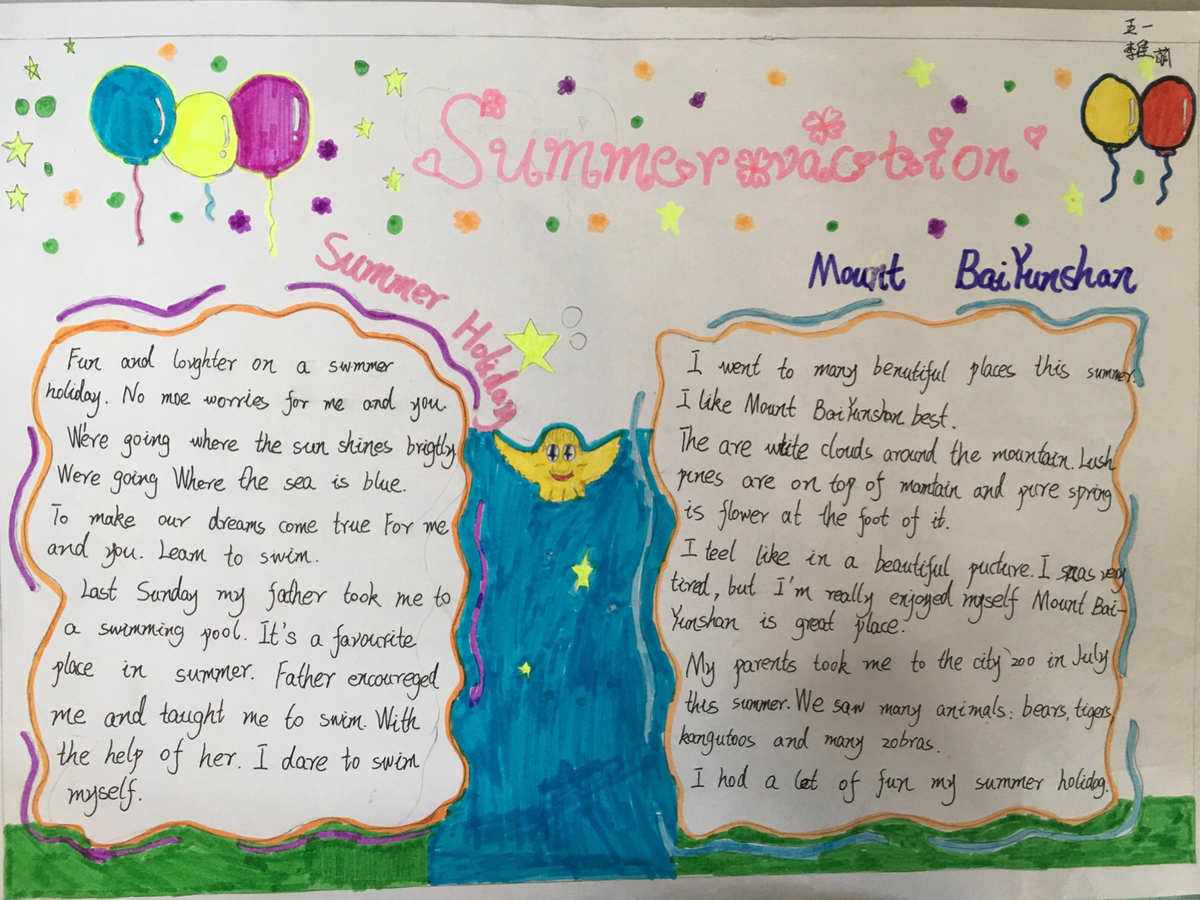 五一
李美萌
Summer vaction
Summer Holiday
Fun and loughter on a swmmer
holiday. No moe worries for me and you.
We're going where the sun shines brigtly
Were going Where the sea is blue.
To make our dreams come true For me
and you. Learn to swim.
Last Sunday my father took me to
a swimming pool. It's a favourite
place in summer. Father encoureged
me and taught me to swim. With
the help of her. I dare to swim
myself.
Mount BaiYunshan
I went to many benutiful places this summer.
I like Mount BaiYunshan best.
The are white clouds around the mountain. Lush
pines are on top of mantain and pure spring
is flower at the foot of it.
I teel like in a beautiful pucture. I was very
tired, but I'm really enjoyed myself Mount Bai-
Yunshan is great place.
My parents took me to the city zoo in July
this summer. We saw many animals: bears, tigers,
kangutoos and many zobras.
I hod a lot of fun my summer holidog.